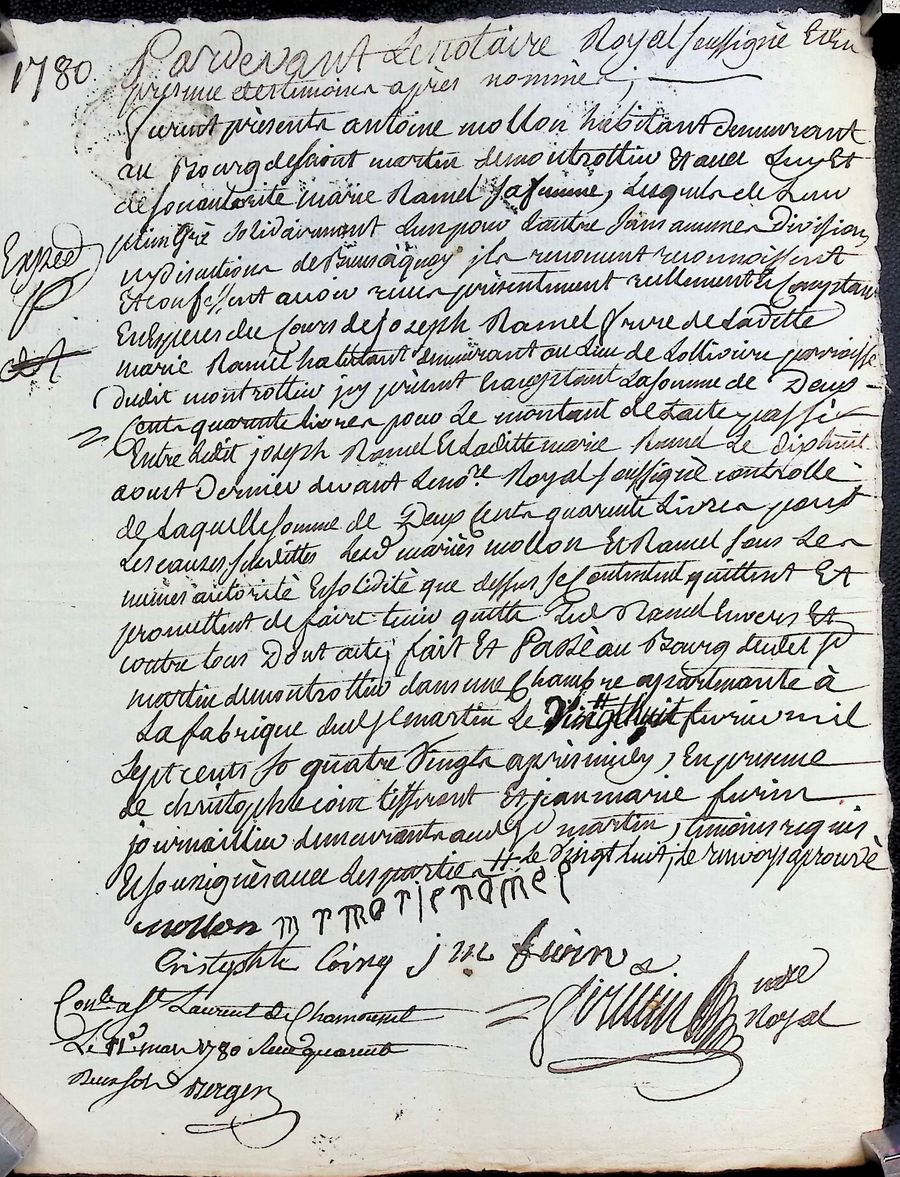 1780
Pardevant Le notaire Royal soussigné Et en
presence des temoins après nommés;
furent présents antoine mollon habitant demeurant
au Bourg de saint martin de montrottier Et avec Luy Et
de son autorité marie Ramel sa femme, Lesquels de Leur
plein gré solidairement L'un pour L'autre sans aucunes Division
ny discution de Biens à quoy ils renoncent reconnoissent
Et confessent avoir reçu présentement reellement Et Comptant
En Especes du Cours de joseph Ramel frere de Laditte
marie Ramel habitant demeurant au Lieu de parroisse
dudit montrottier jcy présent Acceptant La somme de Deux
Cents quarante Livres pour Le montant de L'acte passé
Entre Ledit joseph Ramel Et Laditte marie Ramel Le dixhuit
aoust Dernier devant Le no.re Royal soussigné controllé
de Laquelle somme de Deux Cents quarante Livres pour
Les causes susdittes Lesd mariés mollon Et Ramel sous Les
mêmes autorité Et solidité que dessus se Contentent quittent Et
promettent de faire tenir quitte Led Ramel Envers Et
contre tous Dont acte; fait Et Passé au Bourg dudit st
martin de montrottier dans une Chambre apartenante à
La fabrique dud st martin Le Vingthuit fevrier mil
sept cents quatre Vingts après midy, En presence
de christophle Et jean marie
journaillier demeurants aud st martin, temoins requis
Et soussignés avec Les parties # Le Vingt huit, Le renvoy aprouvé
Expéd
mollon m r marie ramel
Cristophle Coing j m
no.re
Royal
Con.lé a st Laurent de Chamousset
Le 11.e mars 1780 Reçu quarante
Berger